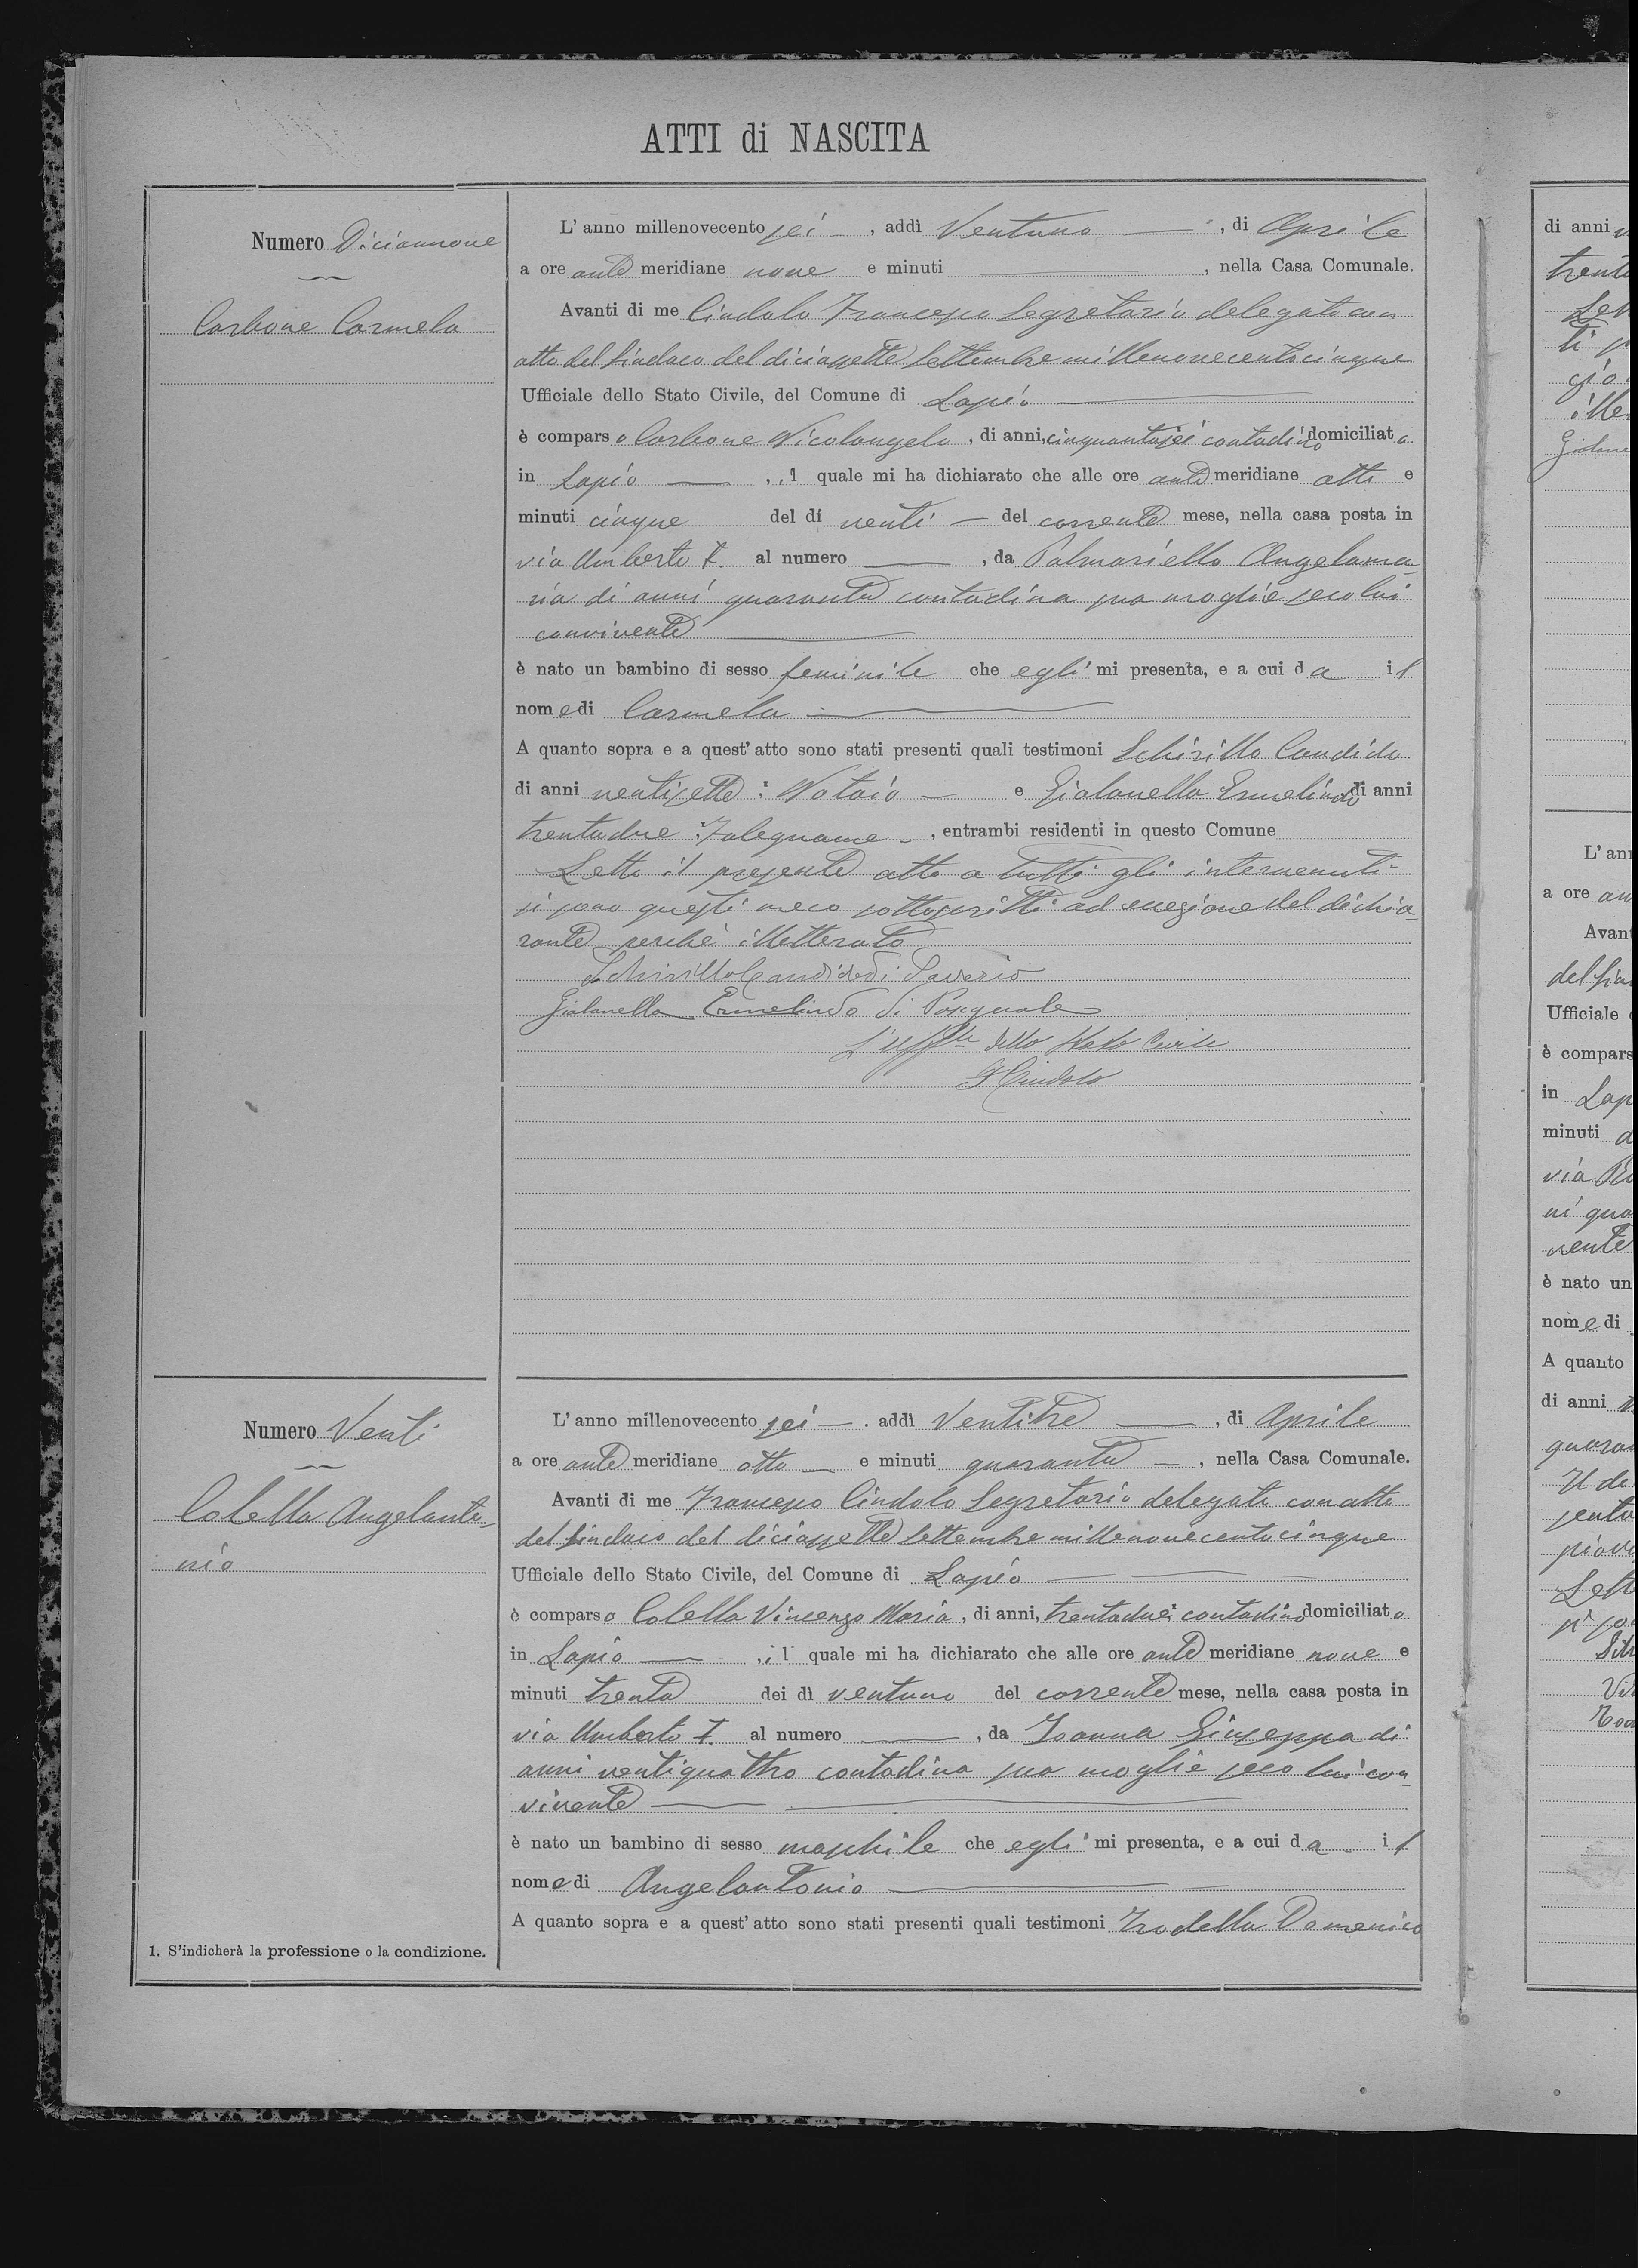 ATTI di NASCITA
Numero Diciannove
Carbone Carmela
L'anno millenovecento sei, addì Ventuno, di Aprile
a ore ante meridiane nove e minuti, nella Casa Comunale.
Avanti di me Cindolo Francesco Segretario delegato con
atto del Sindaco del diciassette Settembre millenovecentocinque
Ufficiale dello Stato Civile, del Comune di Lapio
è comparso Carbone Nicolangelo, di anni, cinquantasei contadino domiciliato
in Lapio, il quale mi ha dichiarato che alle ore ante meridiane otto e
minuti cinque del dì venti del corrente mese, nella casa posta in
via Umberto I. al numero, da Palmariello Angelama-
ria di anni quaranta contadina sua moglie seco lui
convivente
è nato un bambino di sesso feminile che egli mi presenta, e a cui da il
nome di Carmela
A quanto sopra e a quest'atto sono stati presenti quali testimoni Schirillo Candido
di anni ventisette: Notaio e Giolanella Ermelindo di anni
trentadue: Falegname, entrambi residenti in questo Comune
Letto il presente atto a tutti gli intervenuti
si sono questi meco sottoscritti ad eccezione del dichia-
rante perchè illetterato
Schirillo Candido di Saverio
Giolanella Ermelindo di Pasquale
L'Uffle dello Stato Civile
F Cindolo
Numero Venti
Colella Angelanto-
nio
L'anno millenovecento sei. addì Ventitre, di Aprile
a ore ante meridiane otto e minuti quaranta, nella Casa Comunale.
Avanti di me Francesco Cindolo Segretario delegato con atto
del Sindaco del diciassette Settembre millenovecentocinque
Ufficiale dello Stato Civile, del Comune di Lapio
è comparso Colella Vincenzo Maria, di anni, trentadue: contadino domiciliato
in Lapio, il quale mi ha dichiarato che alle ore ante meridiane nove e
minuti trenta dei dì ventuno del corrente mese, nella casa posta in
via Umberto I. al numero, da Ioanna Giuseppa di
anni ventiquattro contadina sua moglie seco lui con-
vivente
è nato un bambino di sesso maschile che egli mi presenta, e a cui da il
nome di Angelantonio
A quanto sopra e a quest'atto sono stati presenti quali testimoni Trodella Domenico
1. S'indicherà la professione o la condizione.
di anni
L'an
a ore an
Avan
del Sin
Ufficiale
è compars
in Lap
minuti
via
vente
è nato un
nome di
A quanto
di anni